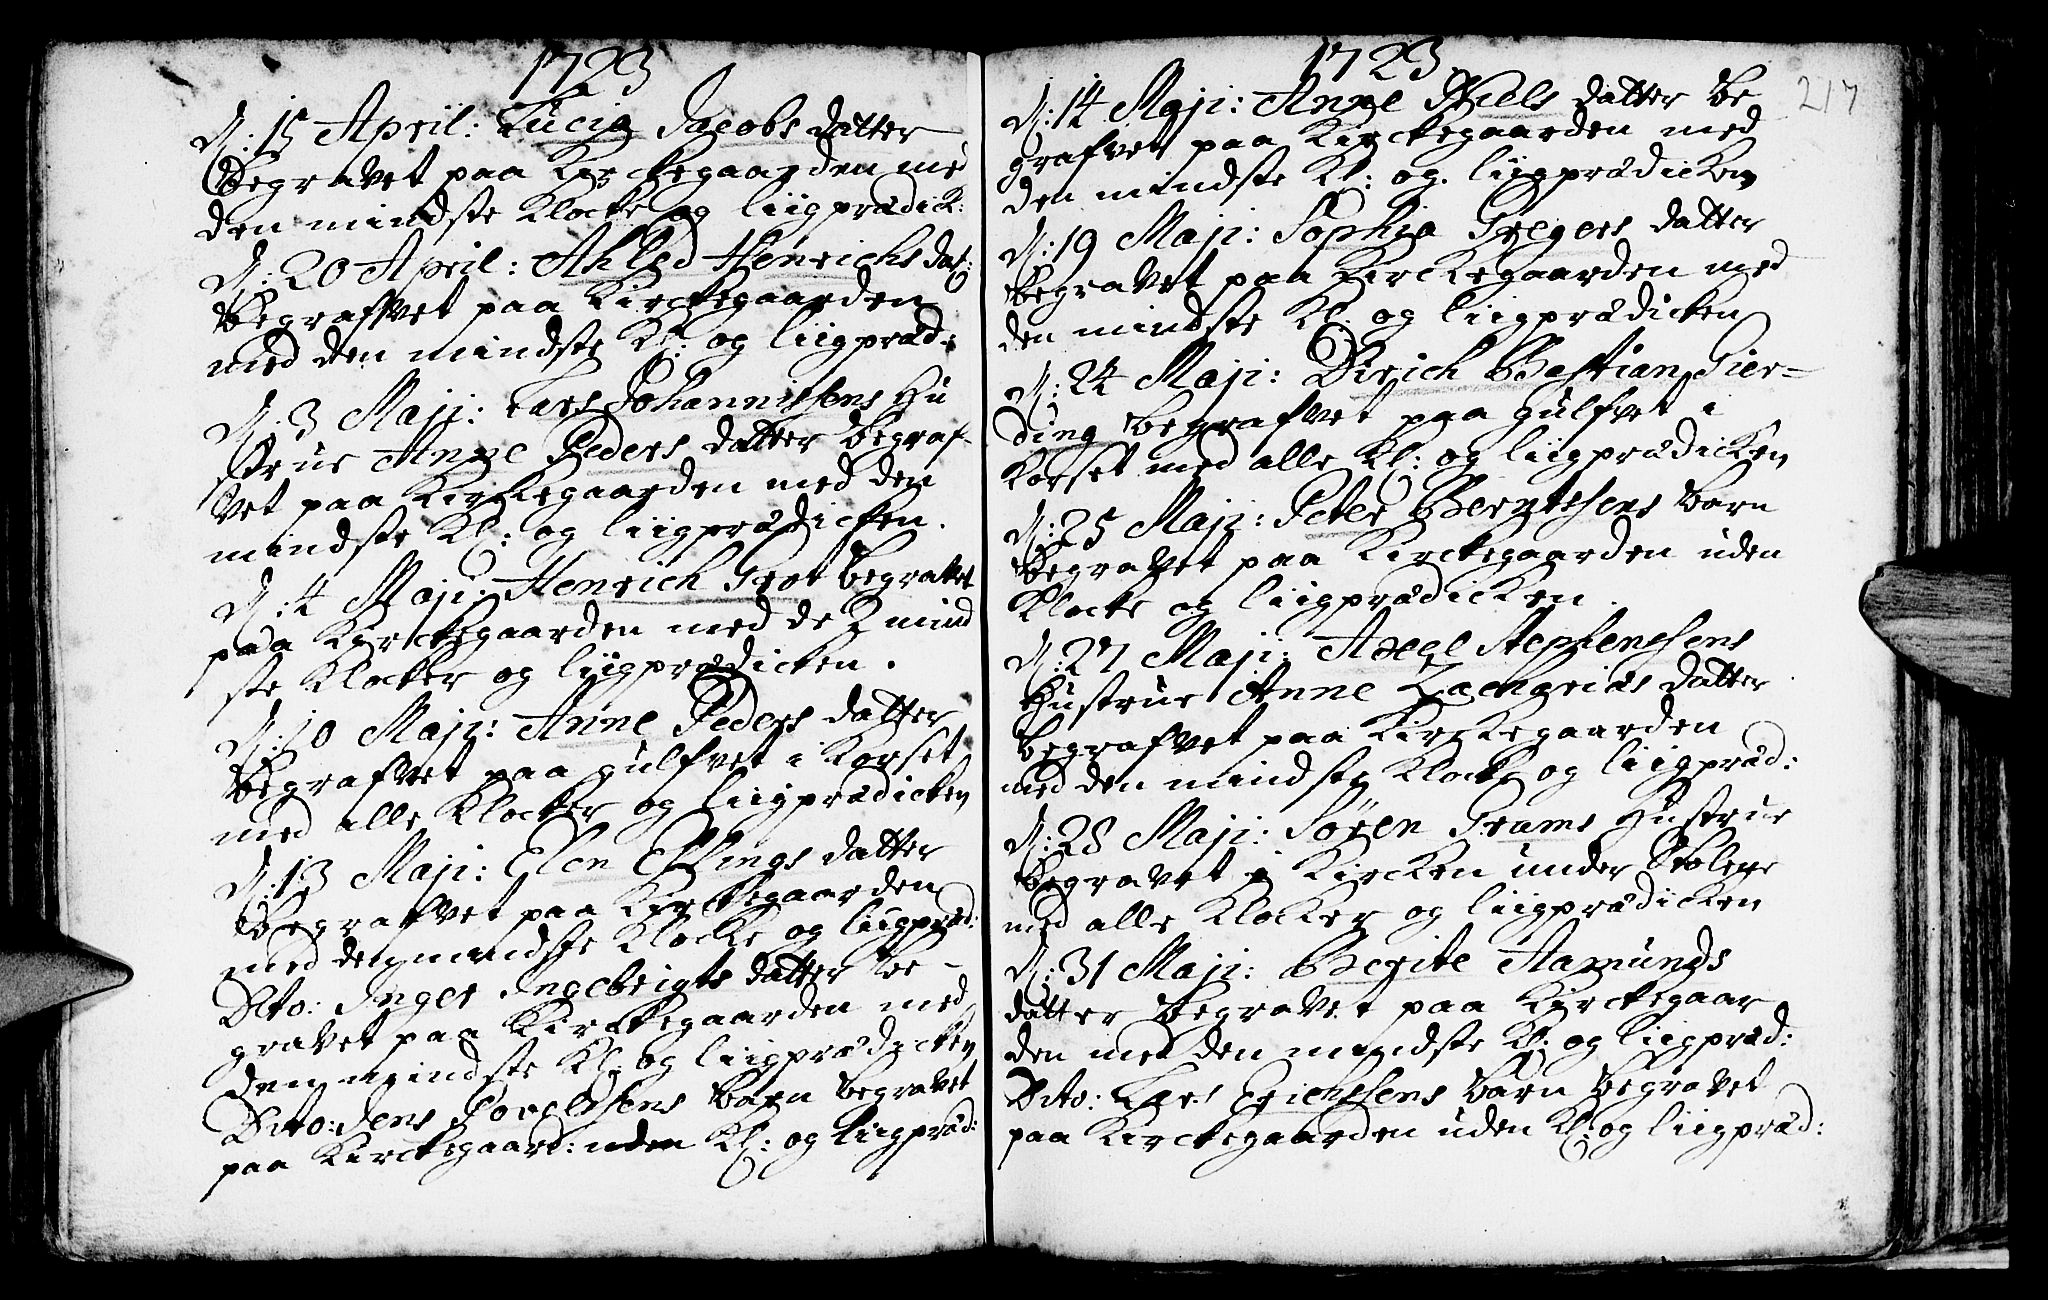 1723
D: 15 April: Lucia Jacobs datter
Begravet paa Kirckegaarden med
den mindste Klocke og liigprædick:
D: 20 April: Ahled Henrichs dat:
Begrafvet paa Kirckegaarden
med den mindste Kl: og liigpræd:
D: 3 Maji: Lars Johannissens Hu
strue Anne Peders datter Begraf-
vet paa Kirckegaarden med den
mindste Kl: og liigprædicken.
D: 4 Maji: Henrich Grot Begravet
paa Kirckegaarden med de 2 mind
ste Klocker og liigprædicken.
D: 10 Maji: Anne Peders datter
Begrafvet paa gulfvet i Korset
med alle Klocker og liigprædicken
D: 13 Maji: Elen Ellings datter
Begrafvet paa Kirckegaarden
med den mindste Klocke og liigpræd:
Dito: Inger Ingebrigts datter be-
gravet paa Kirckegaarden med
den mindste Kl: og liigprædicken
Dito: Jens Povelssens Barn Begravet
paa Kirckegaard: uden Kl: og liigpræd:
1723
217
D: 14 Maji: Anne Niels datter Be
grafvet paa Kirckegaarden med
den mindste Kl: og liigprædicken
D: 19 Maji: Sophia Gregers datter
Begravet paa Kirckegaarden med
den mindste Kl. og liigprædicken
D: 24 Maji: Dirich Bastian Gier-
ding Begrafvet paa gulfvet i
Korset med alle Kl: og liigprædicken
D: 25 Maji: Peter Berntssens Barn
Begravet paa Kirckegaarden uden
Klocke og liigprædicken.
D: 27 Maji: Axel Stephenssens
Hustrue Anne Zacharias datter
Begrafvet paa Kirckegaarden
med den mindste Klocke og liigpræd:
D: 28 Maji: Sören Grams Hustrue
Begravet i Kircken under Stolene
med alle Klocker og liigprædicken
D: 31 Maji: Berite Aamunds
datter Begravet paa Kirckegaar
den med den mindste Kl: og liigpræd:
Dito: Lars Erichssens Barn Begravet
paa Kirckegaarden uden Kl: og liigpræd: